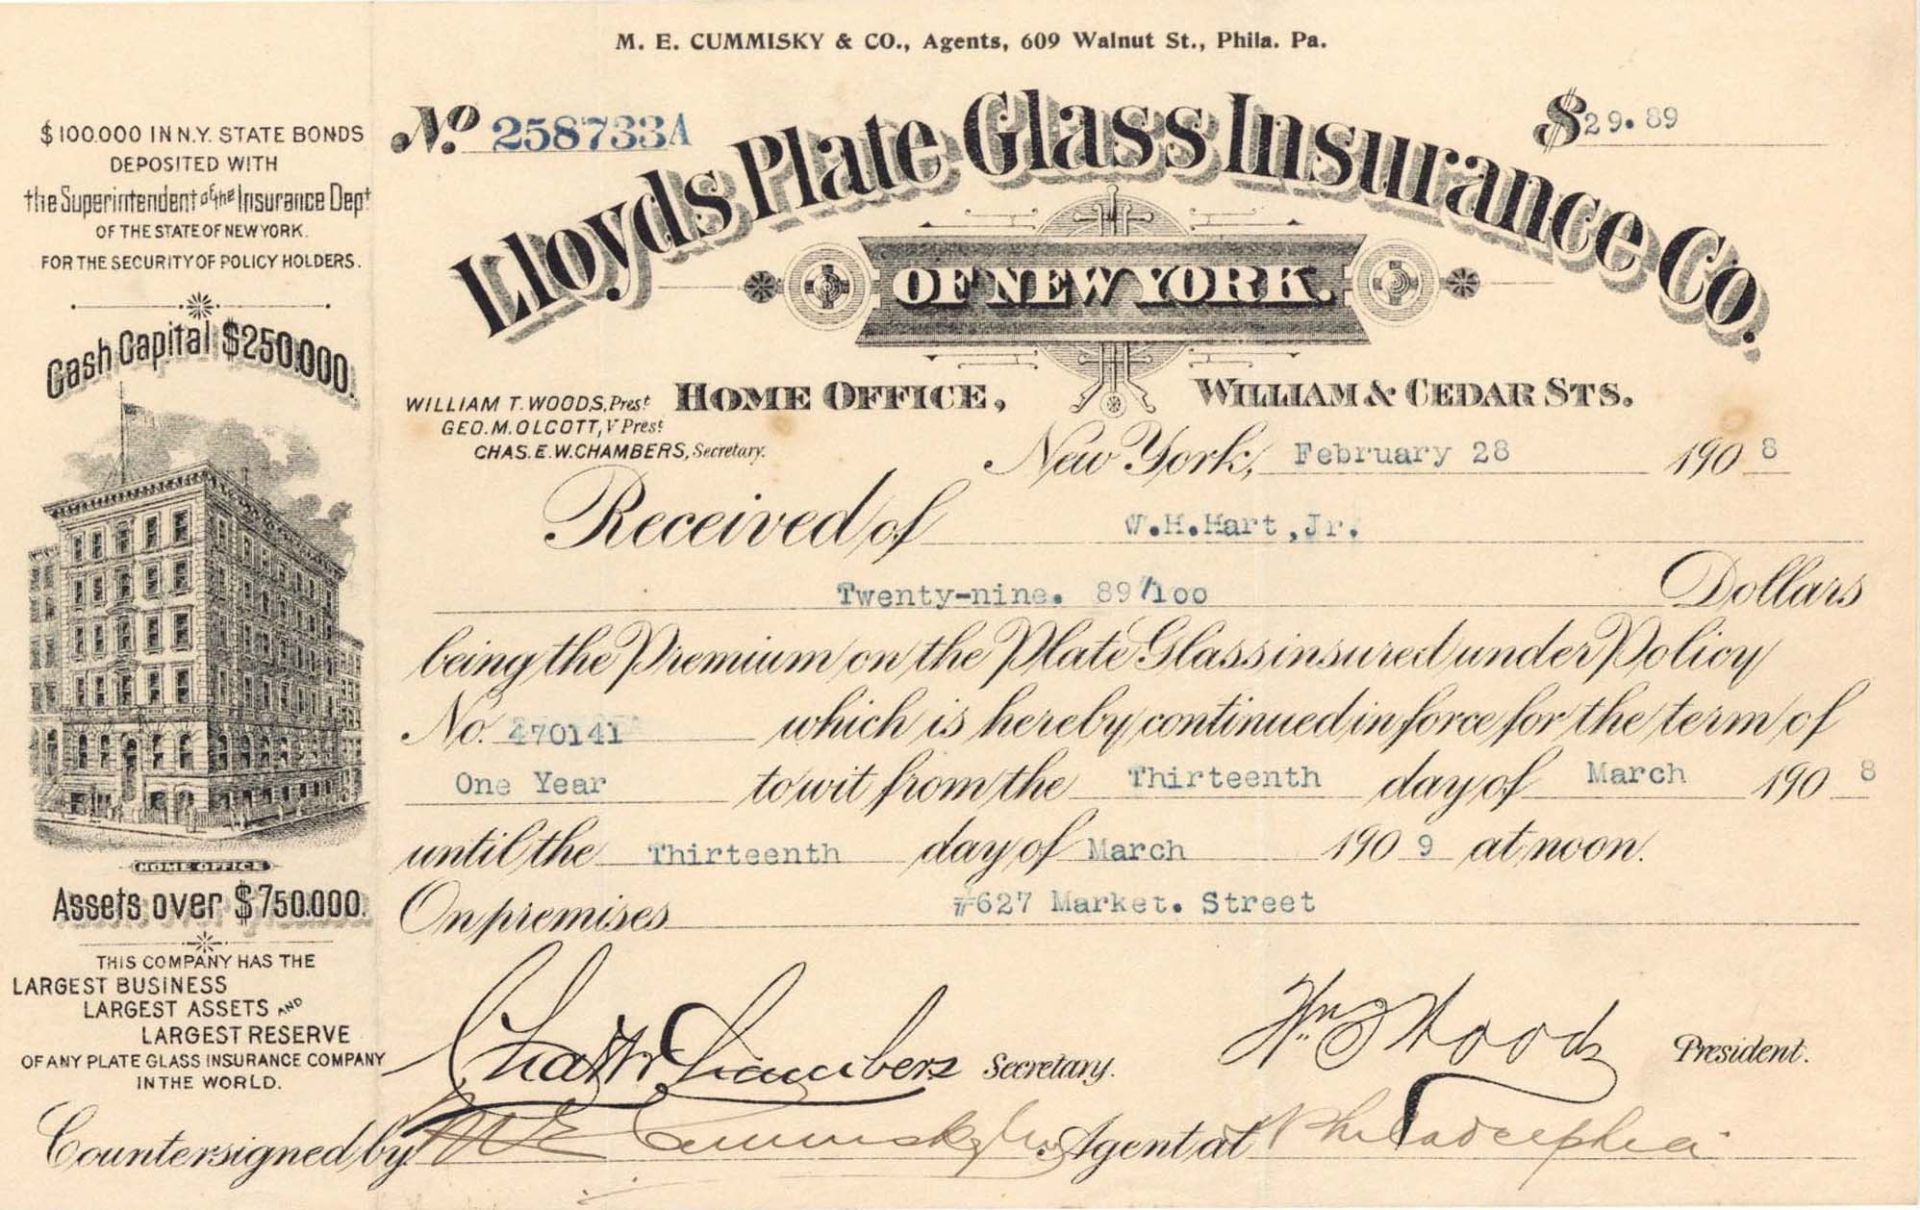 M. E. CUMMISKY & CO., Agents, 609 Walnut St., Phila. Pa.
$100.000 IN N.Y. STATE BONDS
DEPOSITED WITH
the Superintendent of the Insurance Dept
OF THE STATE OF NEW YORK.
FOR THE SECURITY OF POLICY HOLDERS.
Cash Capital $250.000.
HOME OFFICE
Assets over $750.000.
THIS COMPANY HAS THE
LARGEST BUSINESS
LARGEST ASSETS AND
LARGEST RESERVE
OF ANY PLATE GLASS INSURANCE COMPANY
IN THE WORLD.
No. 258733A
$29.89
Lloyds Plate Glass Insurance Co.
OF NEW YORK.
WILLIAM T. WOODS, Prest
GEO. M. OLCOTT, V Prest
CHAS. E. W. CHAMBERS, Secretary.
HOME OFFICE, WILLIAM & CEDAR STS.
New York, February 28 1908
Received of W.H.Hart,Jr.
Twenty-nine. 89/100 Dollars
being the Premium on the Plate Glass insured under Policy
No. 470141 which is hereby continued in force for the term of
One Year to wit from the Thirteenth day of March 1908
until the Thirteenth day of March 1909 at noon.
On premises #627 Market. Street
Chambers Secretary. Wm T Woods President.
Countersigned by M E Cummisky & Co Agent at Philadelphia